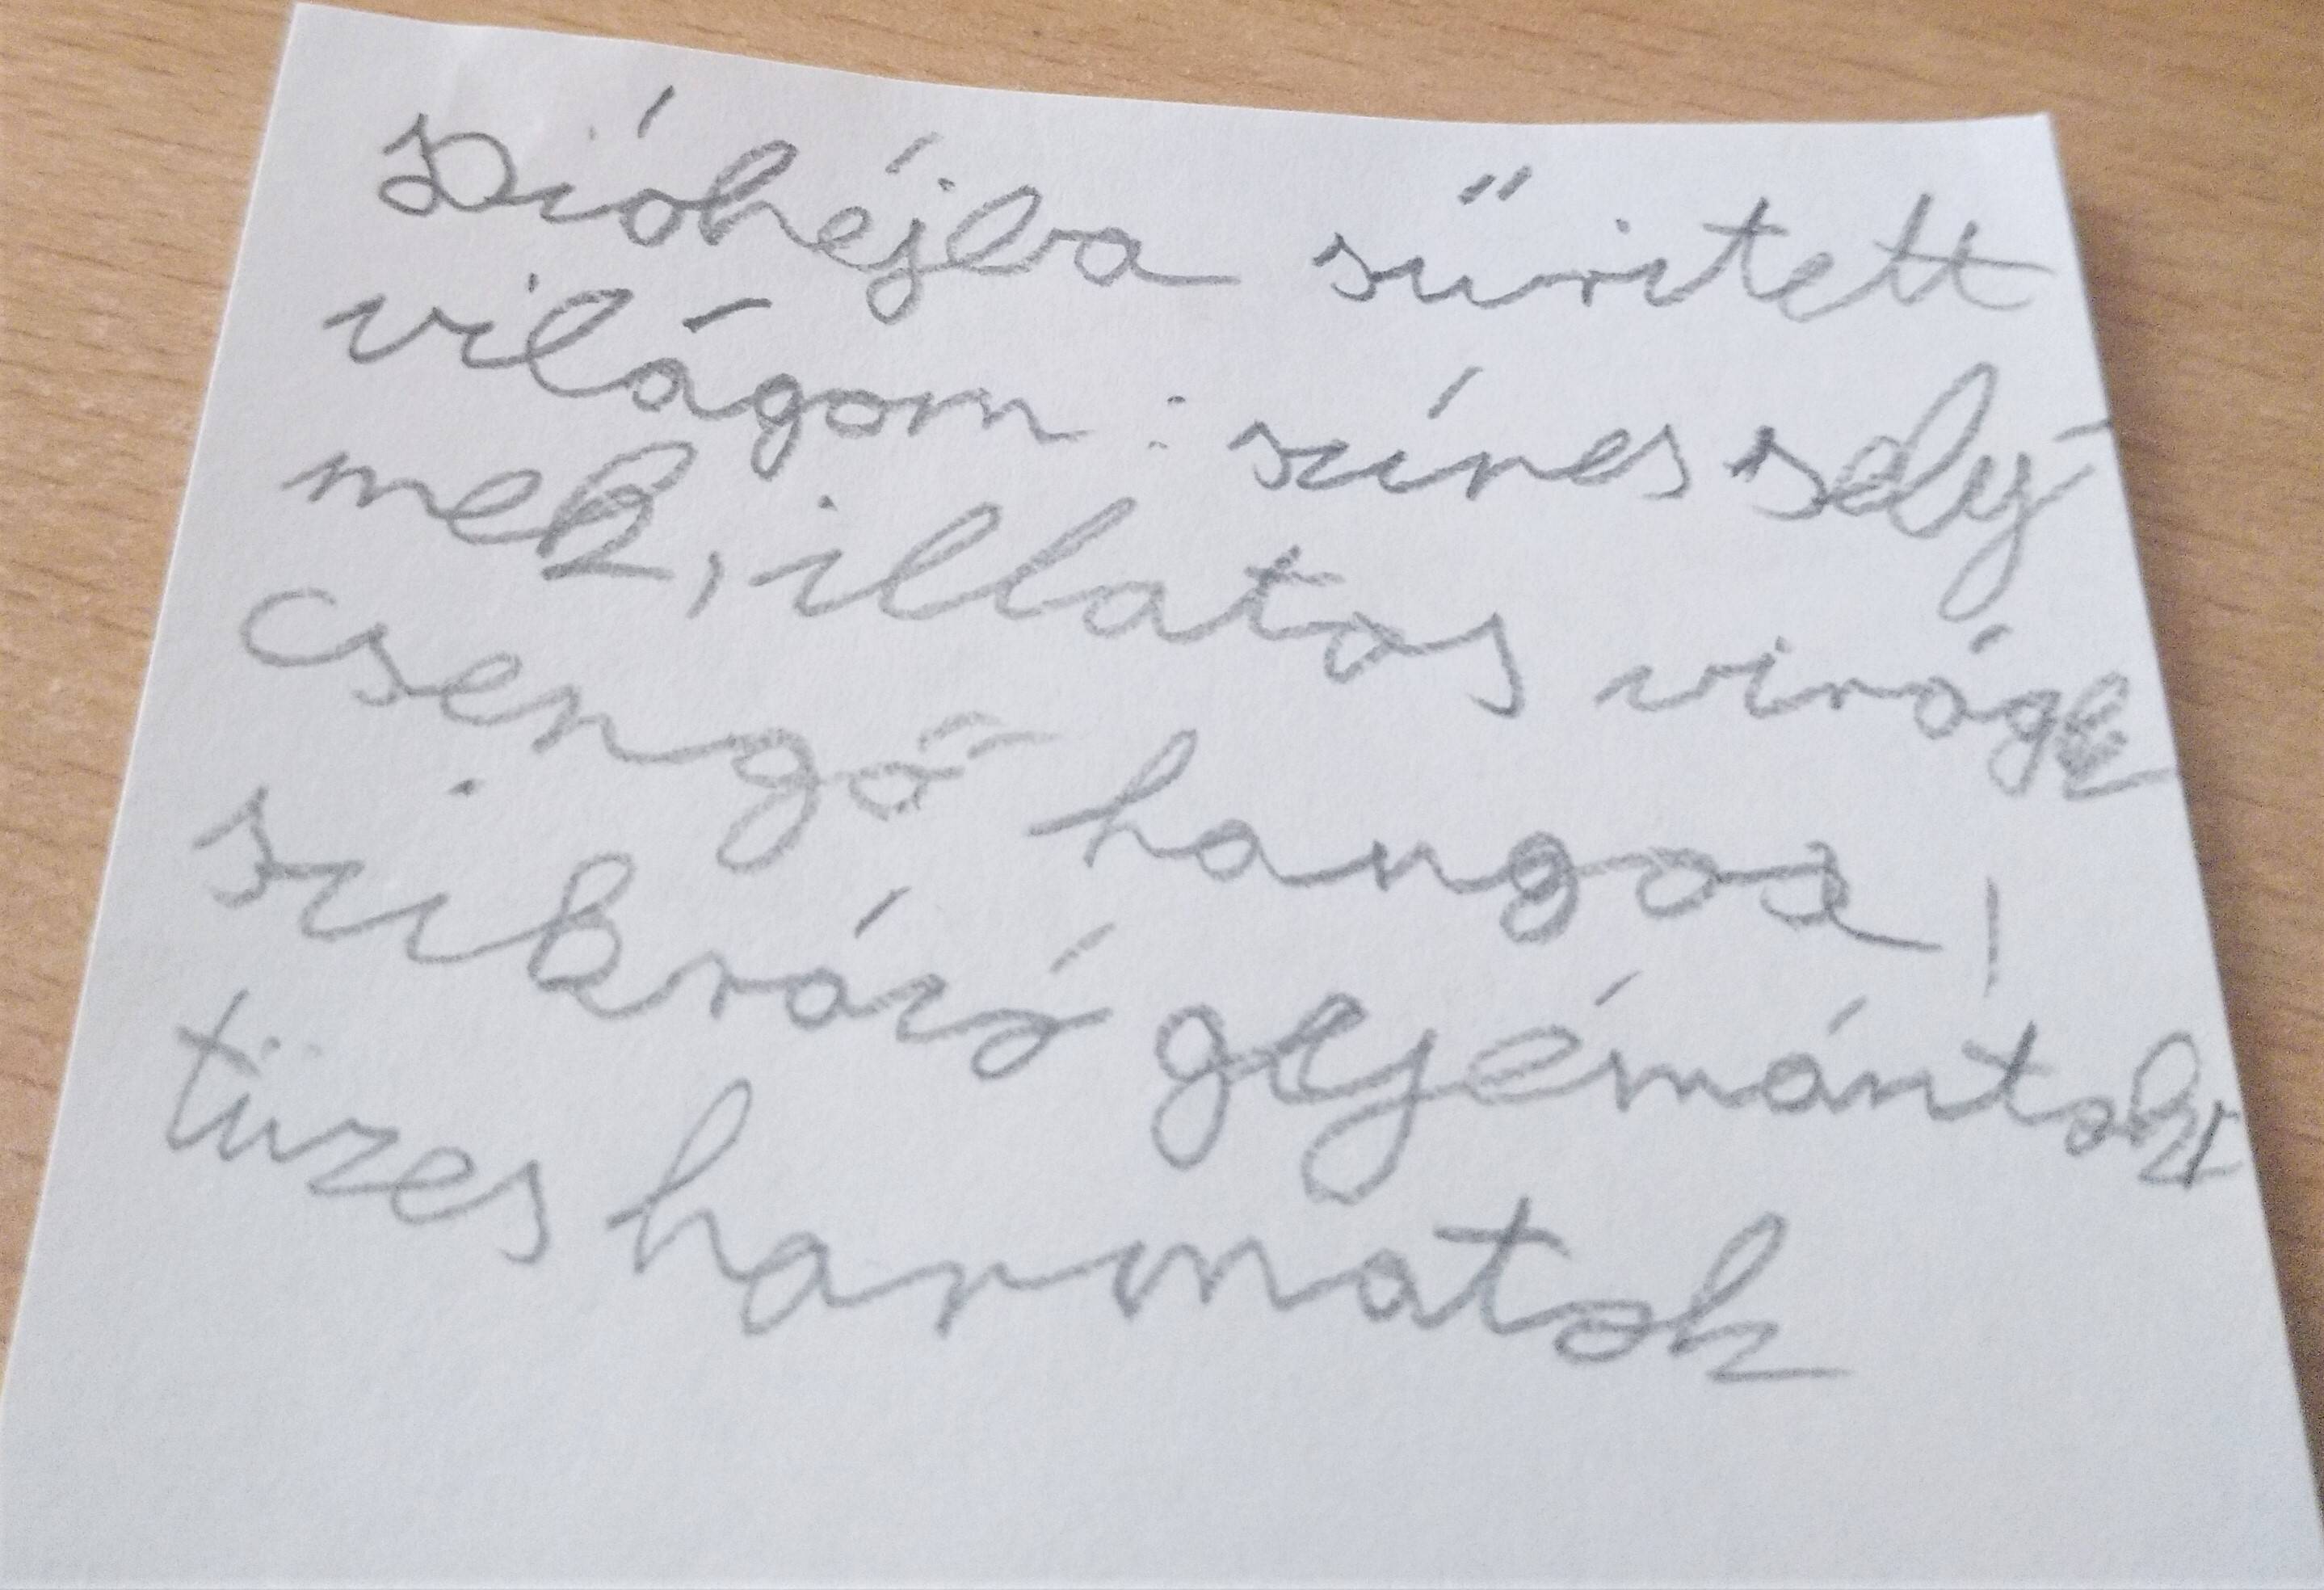 Dióhéjba sűritett
világom: szines sely-
mek, illatos virágk
csengő hangok,
szikrázó gyémántok
tüzes harmatok